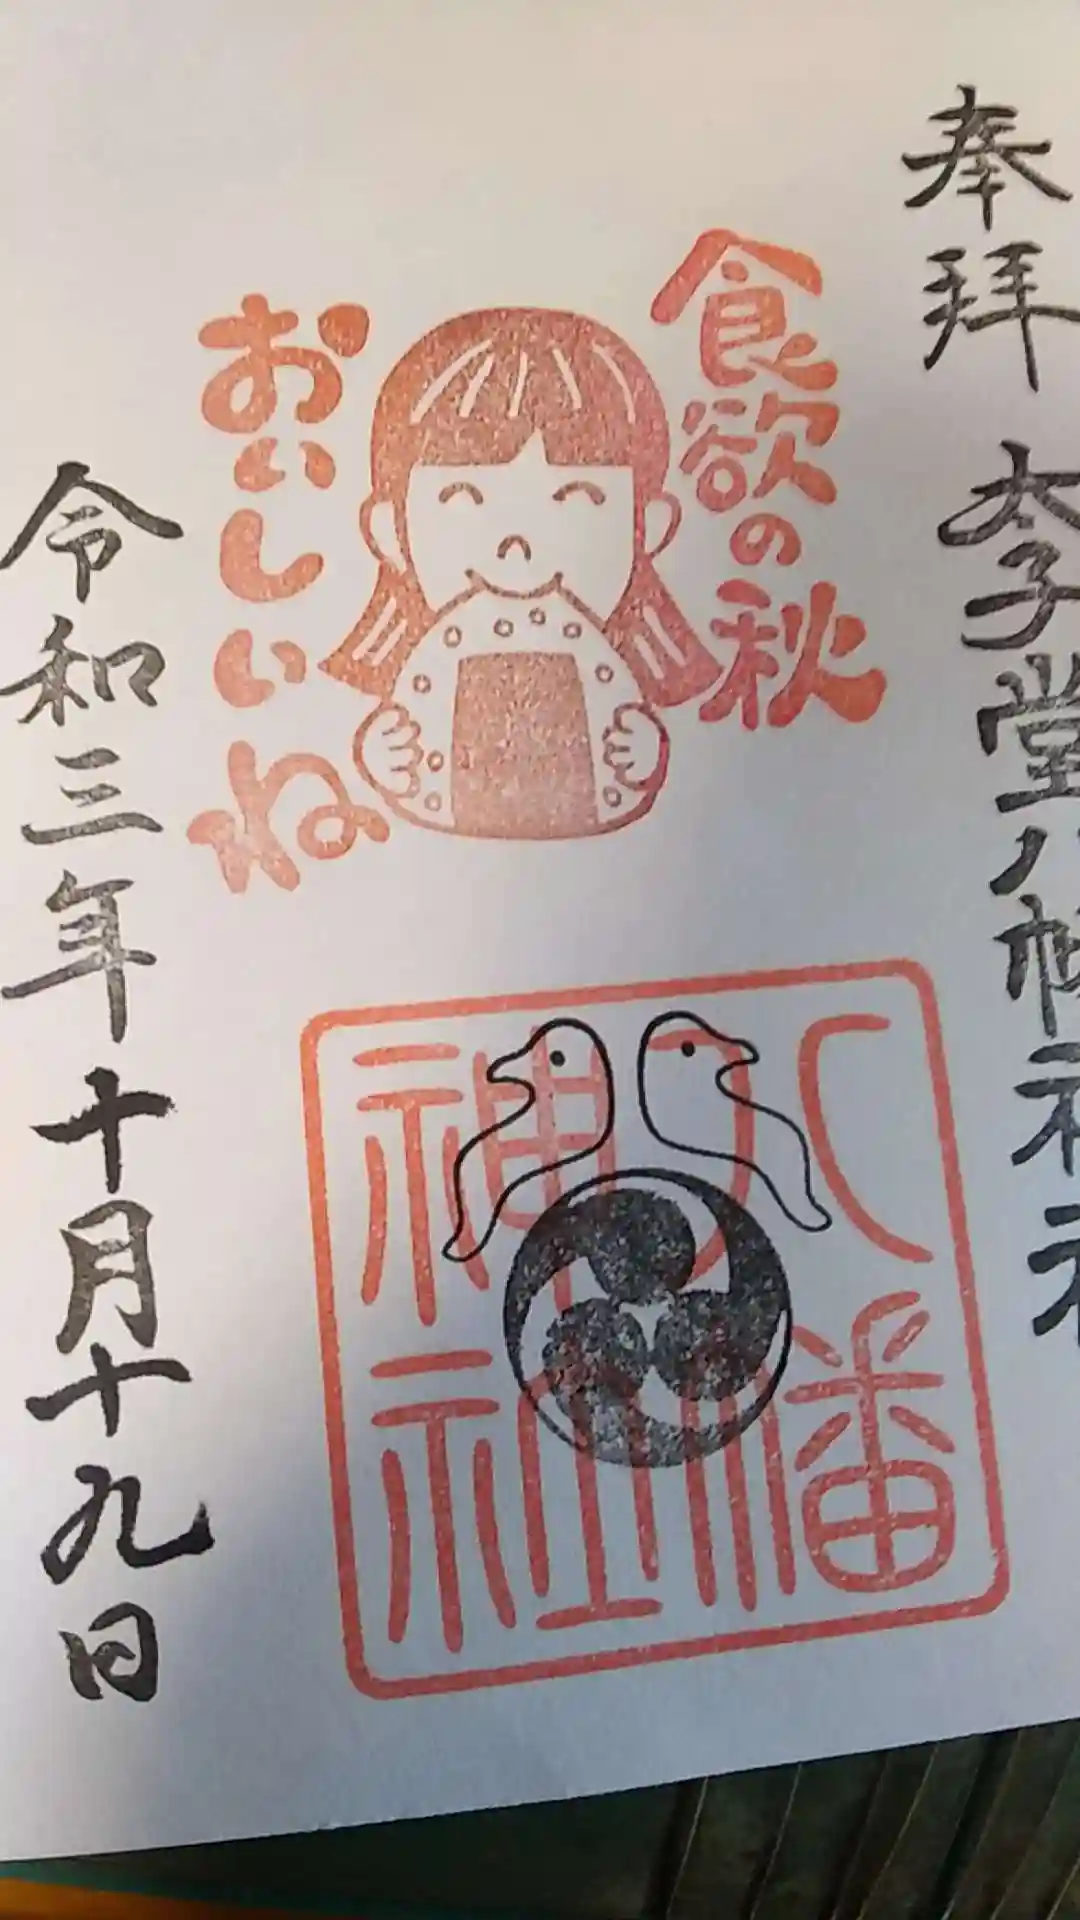 奉拝
太子堂八幡神社
食欲の秋
おいしいね
八幡
神社
令和三年十月十九日